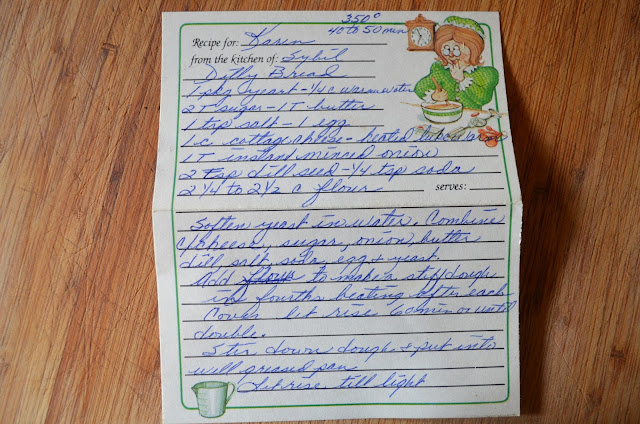 350°
40 to 50 min
Recipe for: Karen
from the kitchen of: Sybil
Dilly Bread
1 pkg yeast - 1/4 c warm water
2 T sugar - 1 T butter
1 tsp salt - 1 egg
1 c. cottage cheese - heated lukewarm
1 T instant minced onion
2 tsp dill seed - 1/4 tsp soda
2 1/4 to 2 1/2 c flour
serves:
Soften yeast in water. Combine
c/cheese, sugar, onion, butter
dill, salt, soda, egg + yeast
Add flour to make a stiff dough
in fourths beating after each
Cover let rise 60 min or until
double.
Stir down dough + put into
well greased pan
Let rise till light